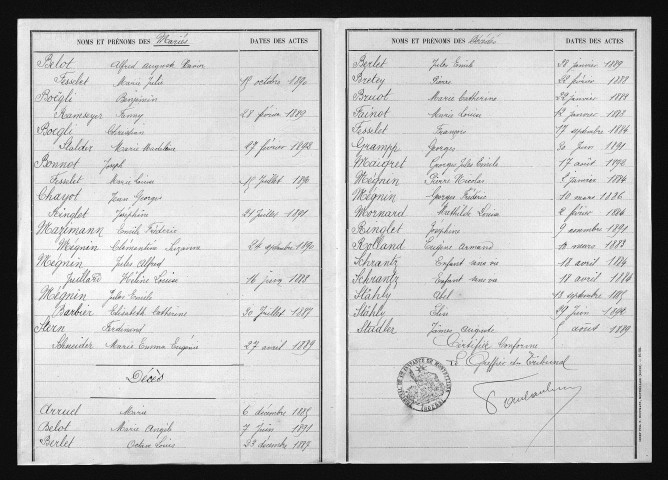 NOMS ET PRÉNOMS DES Mariés DATES DES ACTES
Belot Alfred Auguste Xavier
Fesselet Marie Julie 19 octobre 1890
Boëgli Benjamin
Ramseyer Fanny 28 février 1889
Boegli Christian
Stalder Marie Madeleine 27 février 1892
Bonnot Joseph
Fesselet Marie Louise 15 Juillet 1890
Chayot Jean Georges
Ringlet Joséphine 21 Juillet 1891
Marzmann Emile Frédéric
Mégnin Clémentine Suzanne 24 septembre 1890
Mégnin Jules Alfred
Juillard Hélène Louise 14 juin 1888
Mégnin Jules Emile
Barbier Elisabeth Catherine 30 Juillet 1887
Stern Ferdinand
Schneider Marie Emma Eugénie 27 avril 1889
Décès
Arruel Marie 6 décembre 1885
Belot Marie Angèle 7 Juin 1891
Berlet Octave Louis 23 décembre 1887
NOMS ET PRÉNOMS DES Décédés DATES DES ACTES
Berlet Jules Emile 28 janvier 1889
Bretey Pierre 22 février 1888
Bruot Marie Catherine 22 janvier
Fainot Marie Louise 12 janvier 1883
Fesselet François 17 septembre 1886
Grampp Georges 20 Juin 1891
Maigret Georges Jules Emile 17 août 1892
Mégnin Pierre Nicolas janvier 1884
Mégnin Georges Frédéric 10 mars 1886
Mornard Mathilde Louise 2 février 1886
Ringlet Joséphine 9 décembre 1891
Rolland Eugène Armand mars 1883
Schrantz Enfant sans vie 18 avril 1884
Schrantz Enfant sans vie 18 avril 1886
Stähly Abel 12 septembre 1885
Stähly Elise 29 Juin
Städler James Auguste août 1889
Certifié Conforme
Le Greffier du Tribunal